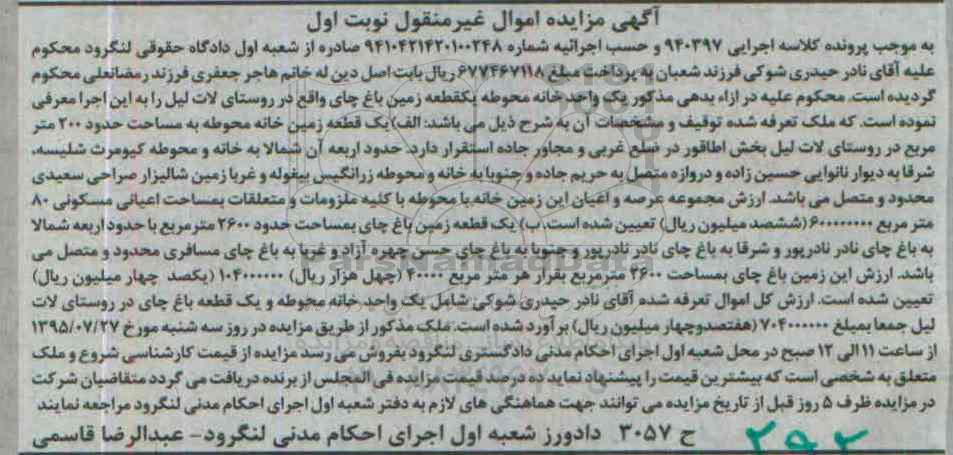 آگهی مزایده اموال غیرمنقول نوبت اول
به موجب پرونده کلاسه اجرایی ۹۴۰۳۹۷ و حسب اجرائیه شماره ۹۴۱۰۴۲۱۴۲۰۱۰۰۲۴۸ صادره از شعبه اول دادگاه حقوقی لنگرود محکوم
علیه آقای نادر حیدری شوکی فرزند شعبان به پرداخت مبلغ ۶۷۷۴۶۷۱۱۸ ریال بابت اصل دین له خانم هاجر جعفری فرزند رمضانعلی محکوم
گردیده است. محکوم علیه در ازاء بدهی مذکور یک واحد خانه محوطه یکقطعه زمین باغ چای واقع در روستای لات لیل را به این اجرا معرفی
نموده است. که ملک تعرفه شده توقیف و مشخصات آن به شرح ذیل می باشد: الف) یک قطعه زمین خانه محوطه به مساحت حدود ۲۰۰ متر
مربع در روستای لات لیل بخش اطاقور در ضلع غربی و مجاور جاده استقرار دارد. حدود اربعه آن شمالا به خانه و محوطه کیومرث شلیسه،
شرقا به دیوار نانوایی حسین زاده و دروازه متصل به حریم جاده و جنوبا به خانه و محوطه زرانگیس بیغوله و غربا زمین شالیزار صراحی سعیدی
محدود و متصل می باشد. ارزش مجموعه عرصه و اعیان این زمین خانه با محوطه با کلیه ملزومات و متعلقات بمساحت اعیانی مسکونی ۸۰
متر مربع ۶۰۰۰۰۰۰۰۰ (ششصد میلیون ریال) تعیین شده است. ب) یک قطعه زمین باغ چای بمساحت حدود ۲۶۰۰ متر مربع با حدود اربعه شمالا
به باغ چای نادر نادرپور و شرقا به باغ چای نادر نادرپور و جنوبا به باغ چای حسن چهره آزاد و غربا به باغ چای مسافری محدود و متصل می
باشد. ارزش این زمین باغ چای بمساحت ۲۶۰۰ متر مربع بقرار هر متر مربع ۴۰۰۰۰ (چهل هزار ریال) ۱۰۴۰۰۰۰۰۰ (یکصد چهار میلیون ریال)
تعیین شده است. ارزش کل اموال تعرفه شده آقای نادر حیدری شوکی شامل یک واحد خانه محوطه و یک قطعه باغ چای در روستای لات
لیل جمعا بمبلغ ۷۰۴۰۰۰۰۰۰ (هفتصدوچهار میلیون ریال) برآورد شده است. ملک مذکور از طریق مزایده در روز سه شنبه مورخ ۱۳۹۵/۰۷/۲۷
از ساعت ۱۱ الی ۱۲ صبح در محل شعبه اول اجرای احکام مدنی دادگستری لنگرود بفروش می رسد مزایده از قیمت کارشناسی شروع و ملک
متعلق به شخصی است که بیشترین قیمت را پیشنهاد نماید ده درصد قیمت مزایده فی المجلس از برنده دریافت می گردد متقاضیان شرکت
در مزایده ظرف ۵ روز قبل از تاریخ مزایده می توانند جهت هماهنگی های لازم به دفتر شعبه اول اجرای احکام مدنی لنگرود مراجعه نمایند
ح ۳۰۵۷ دادورز شعبه اول اجرای احکام مدنی لنگرود- عبدالرضا قاسمی